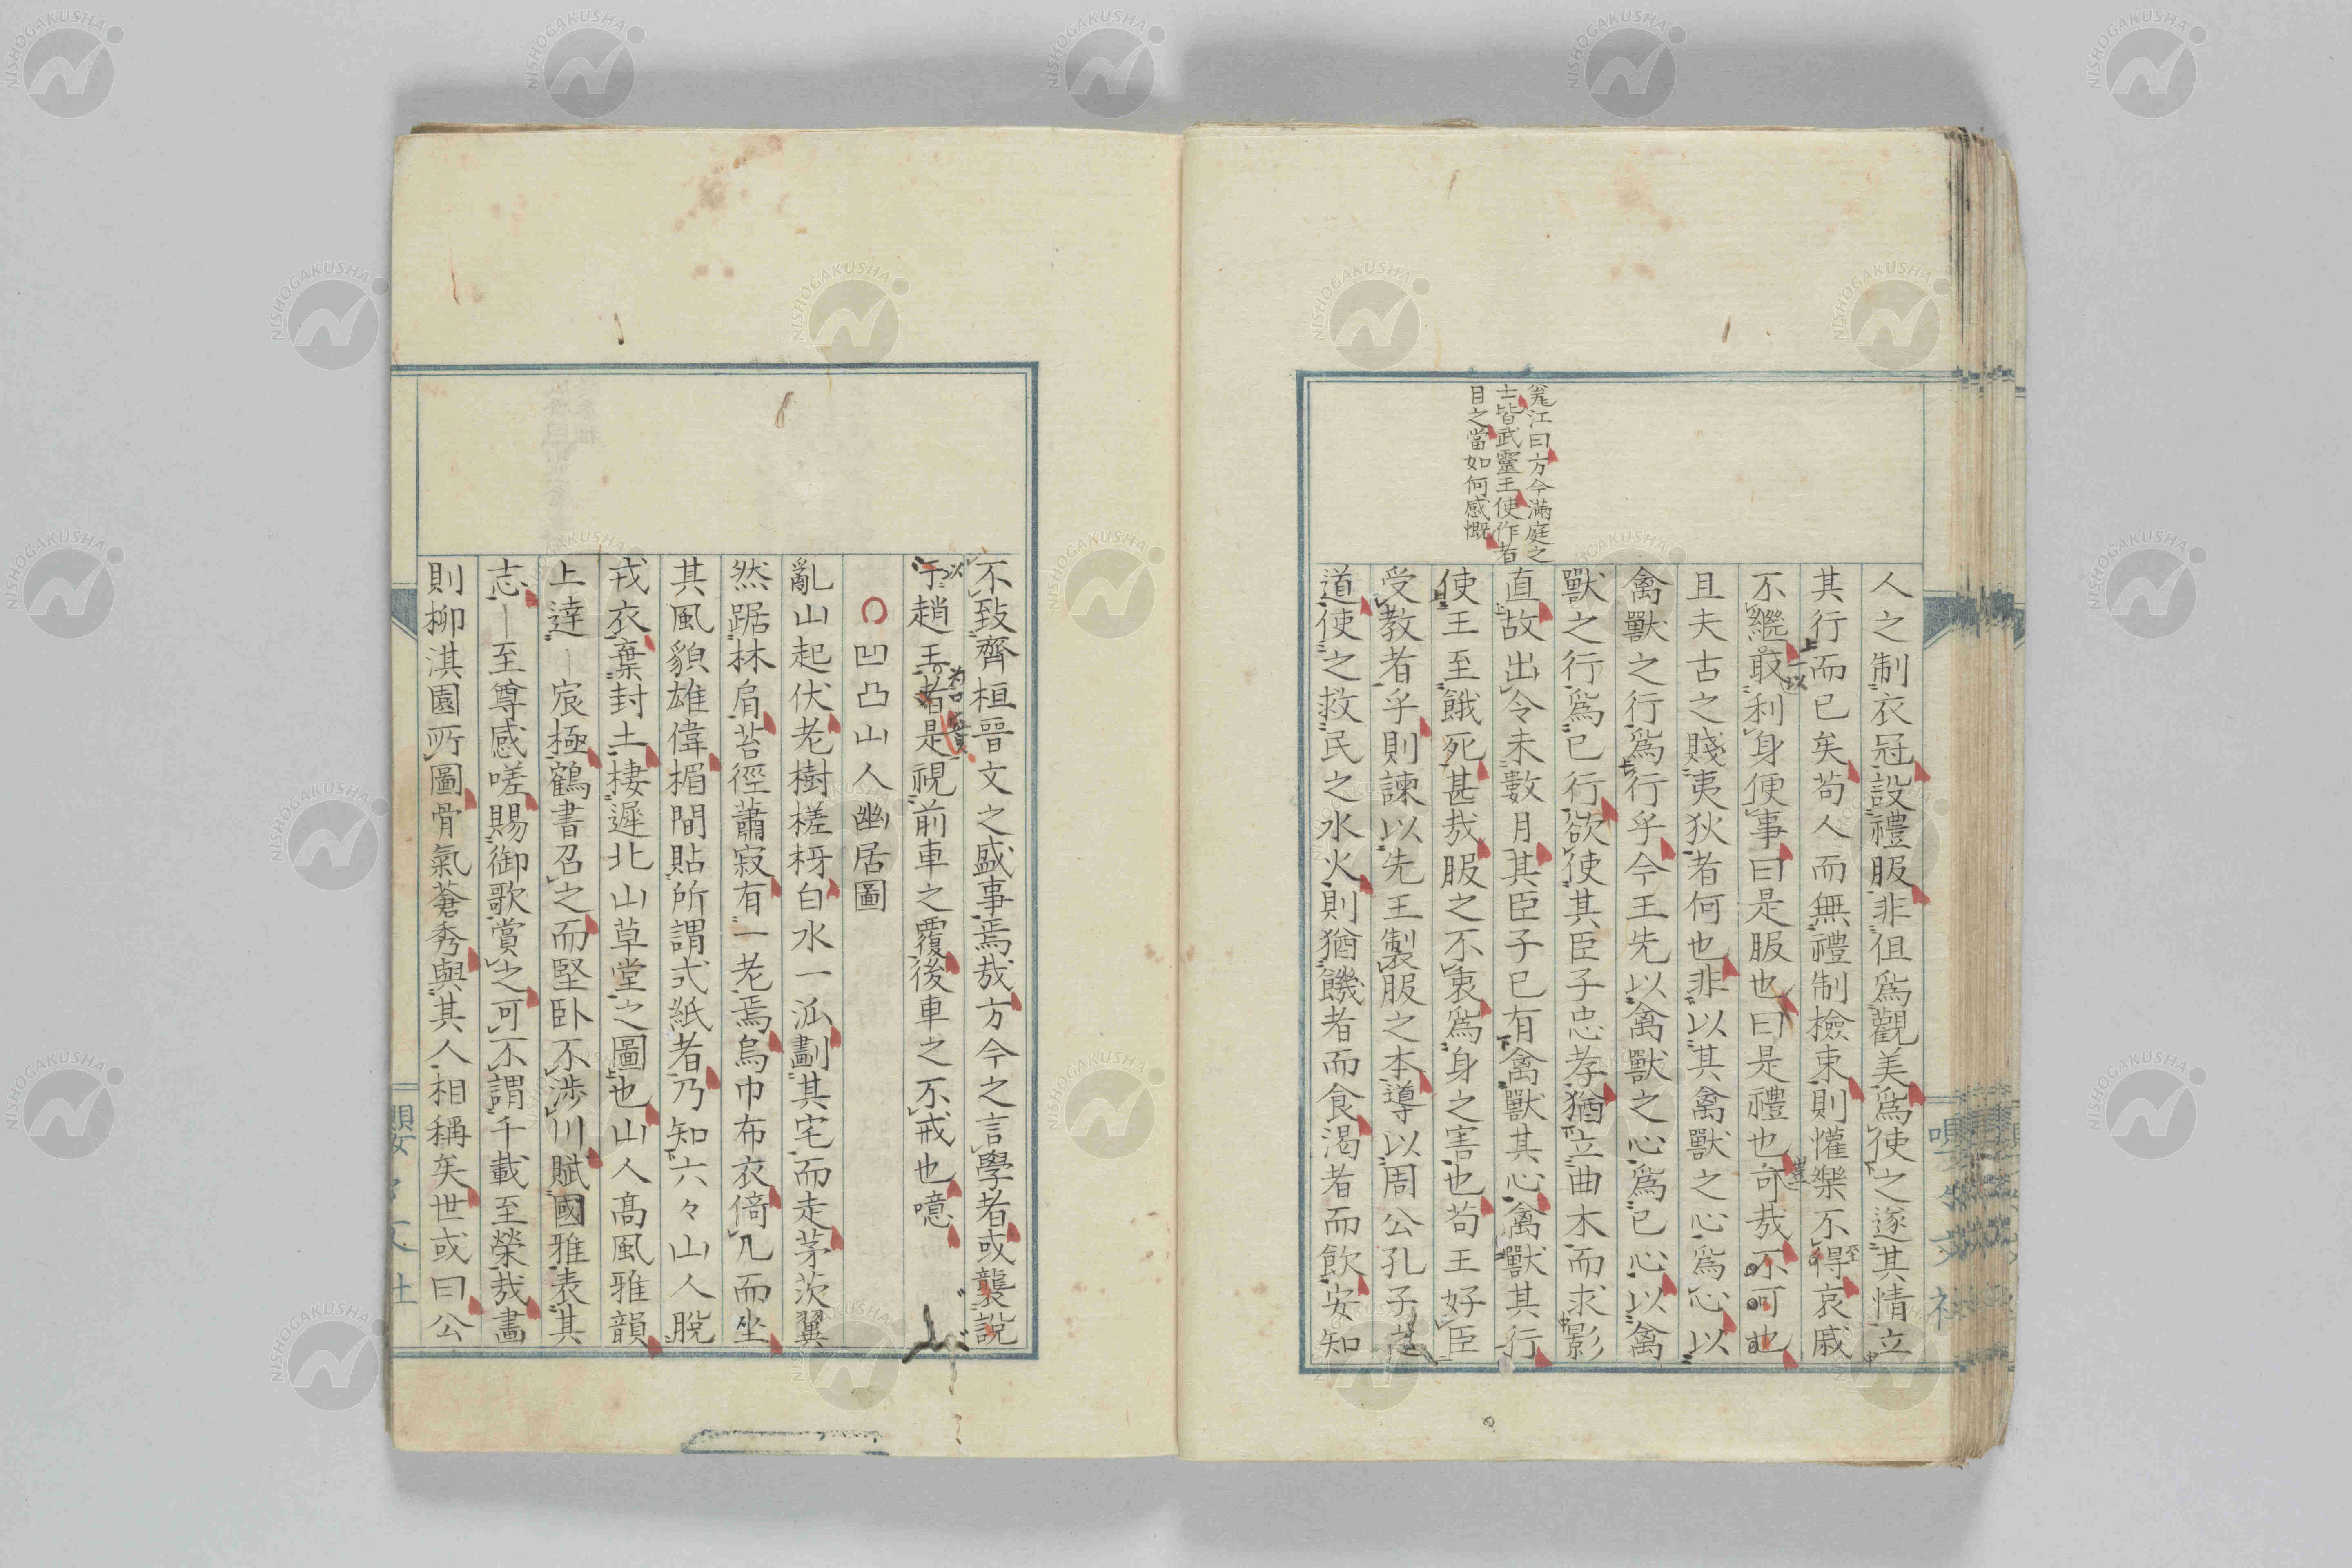 人之制衣冠設禮服非但爲觀美爲使之遂其情立
其行而已矣苟人而無禮制檢束則懽樂不得哀戚
不繼取利身便事曰是服也曰是禮也可哉不可也
且夫古之賤夷狄者何也非以其禽獸之心爲心以
禽獸之行爲行乎今王先以禽獸之心爲已心以禽
獸之行爲已行欲使其臣子忠孝猶立曲木而求影
直故出令未數月其臣子已有禽獸其心禽獸其行
使王至餓死甚哉服之不衷爲身之害也苟王好臣
受教者乎則諫以先王製服之本導以周公孔子之
道使之救民之水火則猶饑者而食渴者而飲安知
毳江曰方今滿庭之
士皆武靈王使作者
目之當如何感慨
不致齊桓晉文之盛事焉哉方今之言學者或襲說
于趙王者是視前車之覆後車之不戒也噫
凹凸山人幽居圖
亂山起伏老樹槎枒白水一派劃其宅而走茅茨翼
然踞林肩苔徑蕭寂有一老焉烏巾布衣倚几而坐
其風貌雄偉楣間貼所謂式紙者乃知六々山人脫
戎衣棄封土棲遲北山草堂之圖也山人高風雅韻
上達宸極鶴書召之而堅臥不涉川賦國雅表其
志至尊感嗟賜御歌賞之可不謂千載至榮哉畵
則柳淇園所圖骨氣蒼秀與其人相稱矣世或曰公
NISHOGAKUSHA